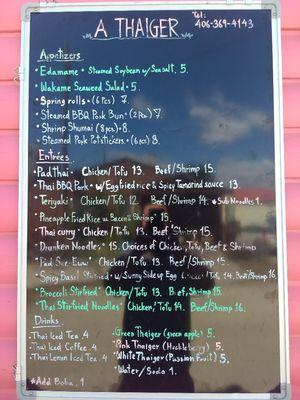 A THAIGER
Tel:
406-369-4143
Appetizers
• Edamame • Steamed Soybean w/ Sea salt 5.
• Wakame Seaweed Salad • 5.
• Spring rolls • (6 pcs) 7.
• Steamed BBQ Pork Bun • (2 pcs) 7
• Shrimp Shumai (8 pcs) • 8.
• Steamed Pork Potstickers • (6 pcs) 8
Entrées
• Pad thai • Chicken/Tofu 13. Beef/Shrimp 15.
• Thai BBQ Pork • w/ Egg fried rice & Spicy Tamarind sauce 13.
• Teriyaki • Chicken/Tofu 12. Beef/Shrimp 14. *Sub Noodles 1.
• Pineapple Fried Rice w/ Bacon & Shrimp 15.
• Thai curry • Chicken/Tofu 13. Beef/Shrimp 15.
• Drunken Noodles • 15. Choices of Chicken, Tofu, Beef & Shrimp
• Pad See Euw • Chicken/Tofu 13. Beef/Shrimp 15.
• Spicy Basil Stirfried • w/ Sunny Side up Egg Chicken/Tofu 14. Beef/Shrimp 16.
• Broccoli Stirfried • Chicken/Tofu 13. Beef/Shrimp 15.
• Thai Stirfried Noodles • Chicken/Tofu 14. Beef/Shrimp 16.
Drinks
• Thai Iced Tea 4
• Thai Iced Coffee 4
• Thai Lemon Iced Tea 4
*Add Boba 1
• Green Thaiger (green apple) 5.
• Pink Thaiger (Huckleberry) 5.
• White Thaiger (Passion Fruit) 5.
• Water/Soda 1.